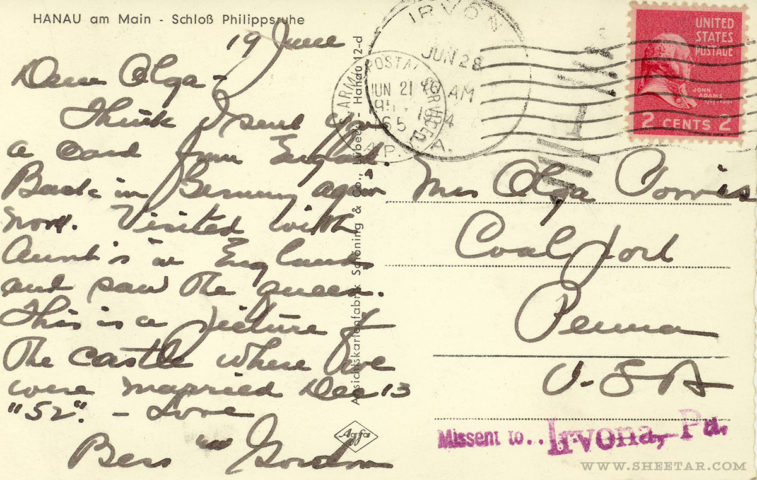 HANAU am Main - Schloß Philippsruhe
19 June
Dear Olga -
Think I send you
a card from England.
Back in Germany again
now. Visited with
Aunts in England
and saw the queen.
This is a picture of
the castle where we
were married Dec 13
"52". - Love
Bess Gordon
Ansichtskartenfabrik Schöning & Co., Lübeck - Hanau 12-d
Agfa
JUN 28
ARMY POSTAL
JUN 21
AM
PA.
A.P.
UNITED
STATES
POSTAGE
JOHN
ADAMS
2 CENTS 2
Mrs Olga
Coalport
Penna
U.S.A
Missent to.. Irvona, Pa.
WWW.SHEETAR.COM